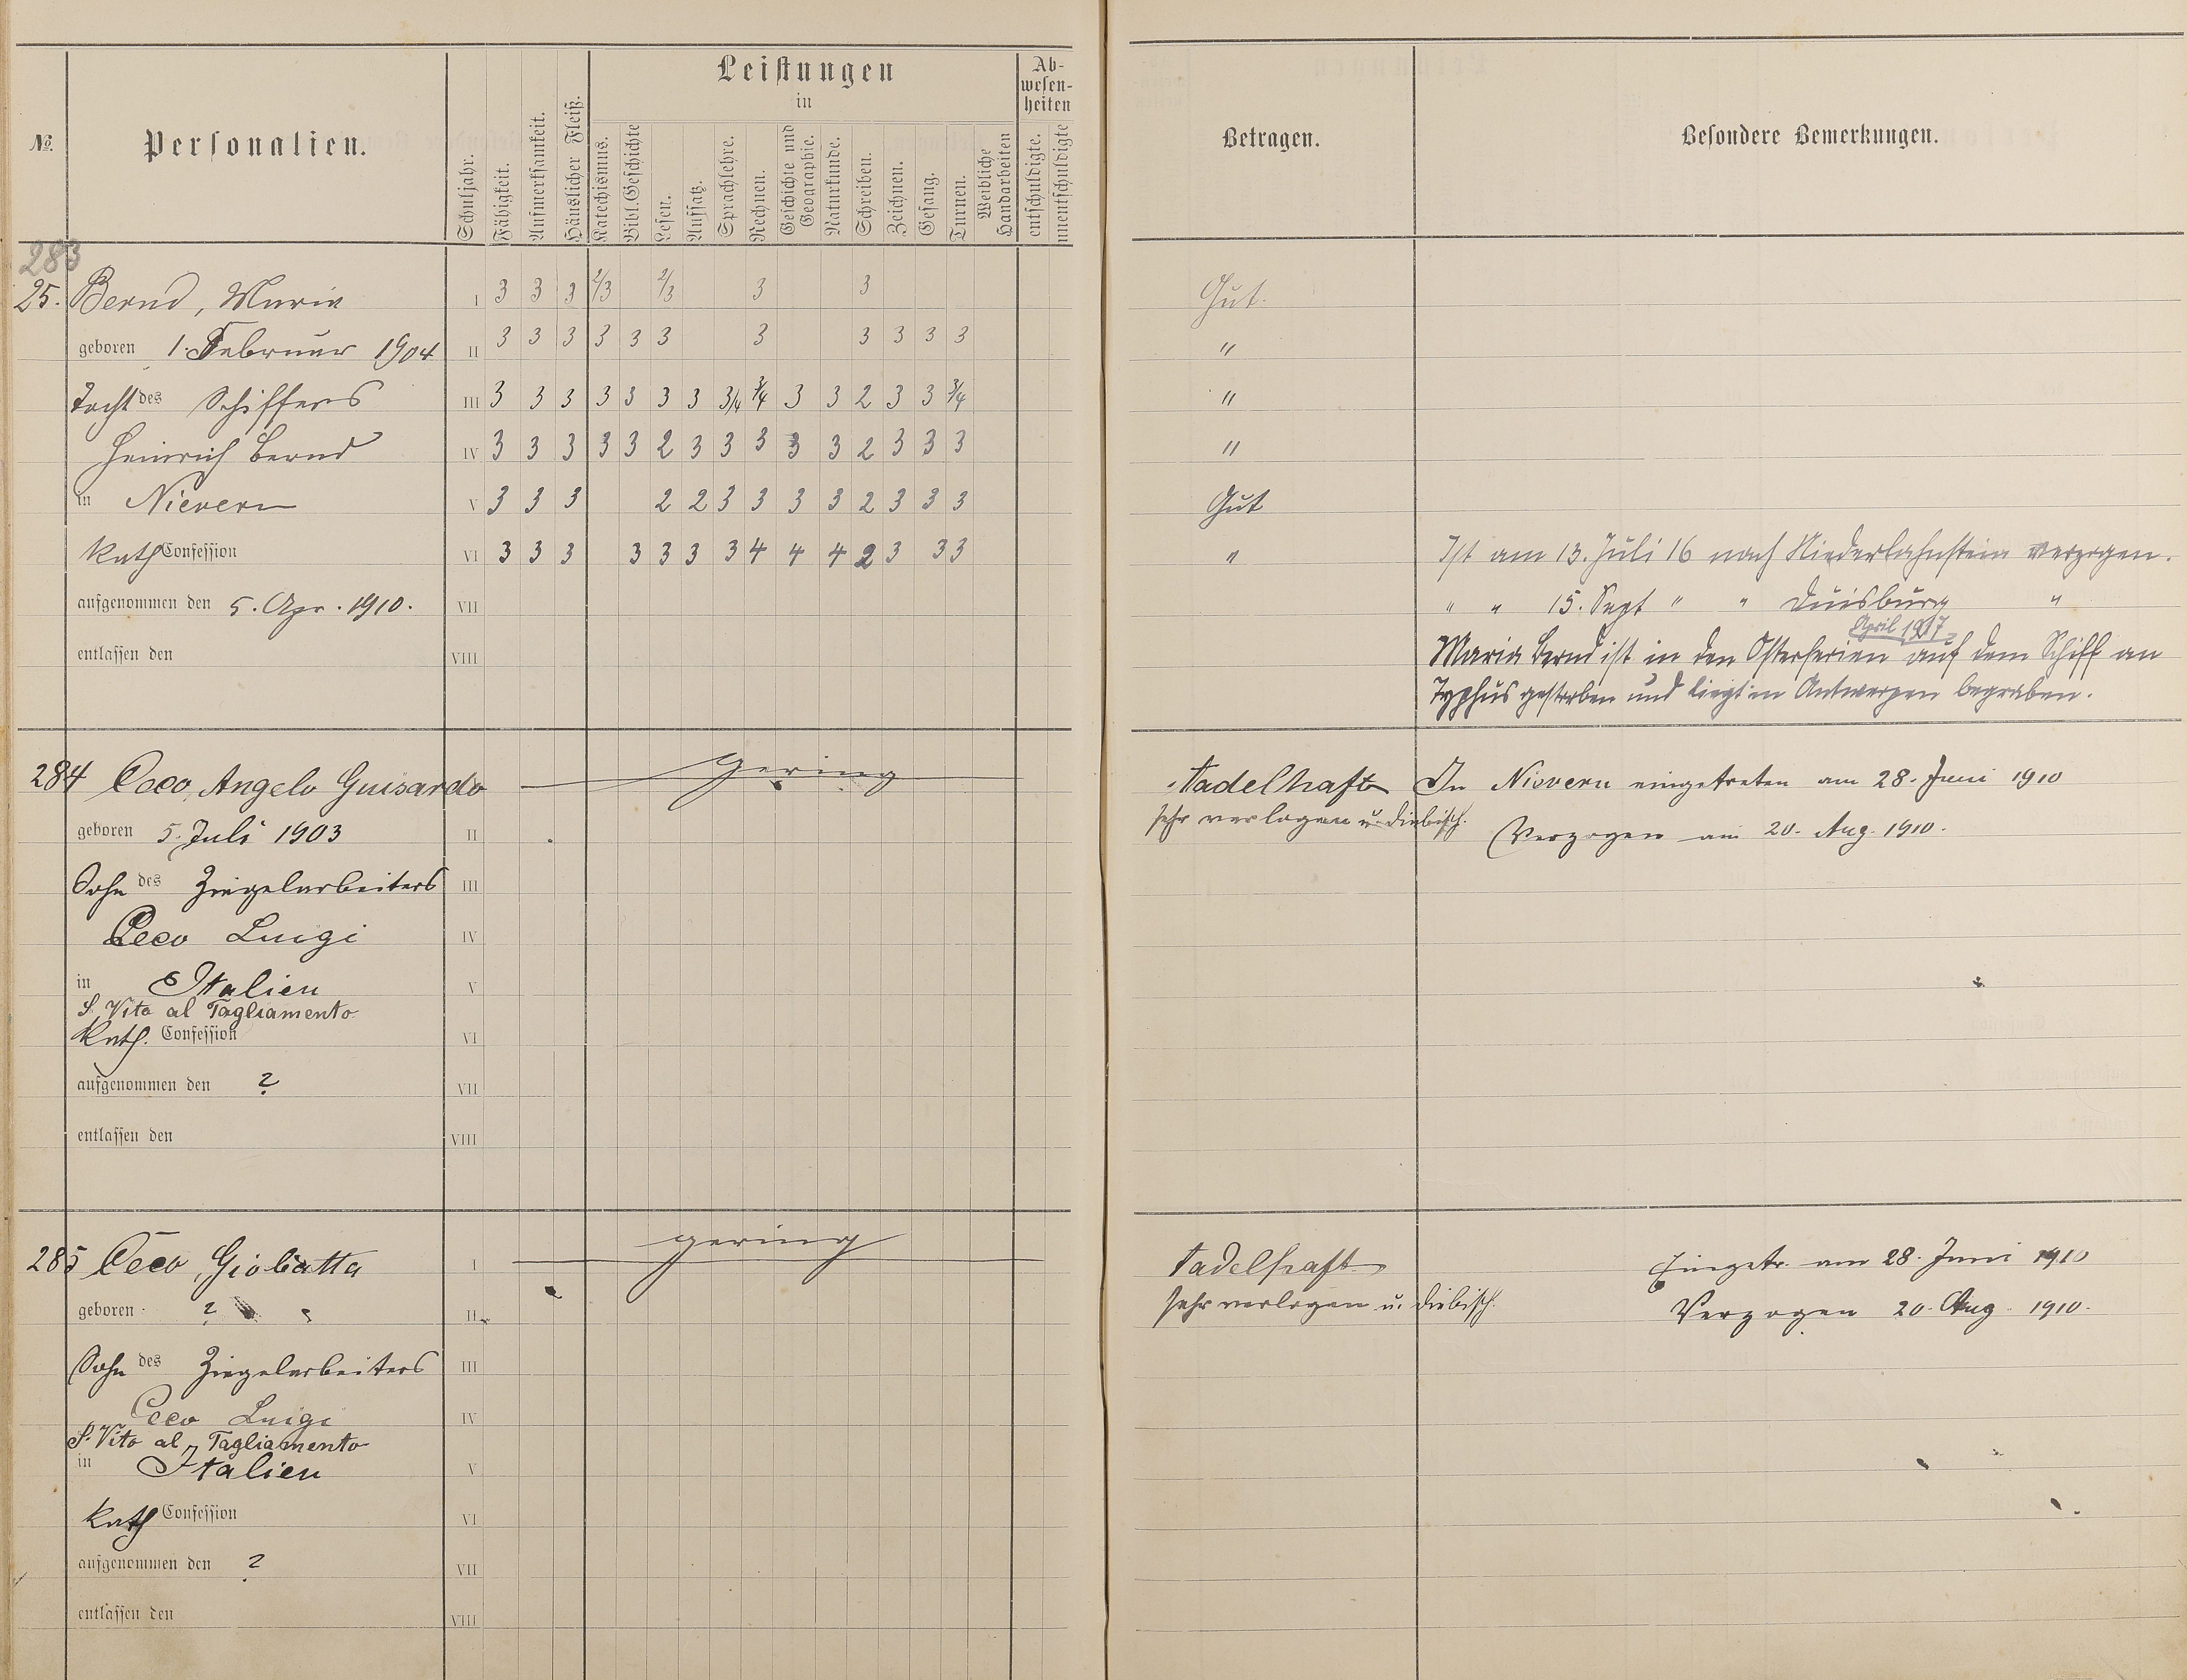 №.
Personalien.
Schuljahr.
Fähigkeit.
Aufmerksamkeit.
Häuslicher Fleiß.
Leistungen
in
Katechismus.
Bibl. Geschichte
Lesen.
Aufsatz.
Sprachlehre.
Rechnen.
Geschichte und Geographie.
Naturkunde.
Schreiben.
Zeichnen.
Gesang.
Turnen.
Weibliche Handarbeiten
Ab-
wesen-
heiten
entschuldigte.
unentschuldigte
Betragen.
Besondere Bemerkungen.
283
25. Bernd, Maria I 3 3 3 2/3 2/3 3 3 Gut.
geboren 1. Februar 1904 II 3 3 3 3 3 3 3 3 3 3 3 "
Tocht des Schiffers III 3 3 3 3 3 3 3 3/4 3/4 3 3 2 3 3 3/4 "
Heinrich Bernd IV 3 3 3 3 3 2 3 3 3 3 3 2 3 3 3 "
in Nievern V 3 3 3 2 2 3 3 3 3 2 3 3 3 Gut
Kath Confession VI 3 3 3 3 3 3 3 4 4 4 2 3 3 3 " Ist am 13. Juli 16 nach Niederlahnstein verzogen.
aufgenommen den 5. Apr. 1910. VII " " 15. Sept " " Duisburg "
April 1917
entlassen den VIII Maria Bernd ist in den Osterferien auf dem Schiff an
Typhus gestorben und liegt in Antwerpen begraben.
284 Ceco, Angelo Guisardo gering tadelhaft In Nievern eingetreten am 28. Juni 1910
geboren 5. Juli 1903 II sehr verlogen u. diebisch. Verzogen am 20. Aug. 1910.
Sohn des Ziegelarbeiters III
Ceco Luigi IV
in Italien V
S. Vito al Tagliamento
Kath. Confession VI
aufgenommen den ? VII
entlassen den VIII
285 Ceco, Giobatta I gering tadelhaft Eingetr. am 28. Juni 1910
geboren ? II sehr verlogen u. diebisch. Verzogen 20. Aug. 1910.
Sohn des Ziegelarbeiters III
Ceco Luigi IV
S. Vito al Tagliamento
in Italien V
Kath Confession VI
aufgenommen den ? VII
entlassen den VIII